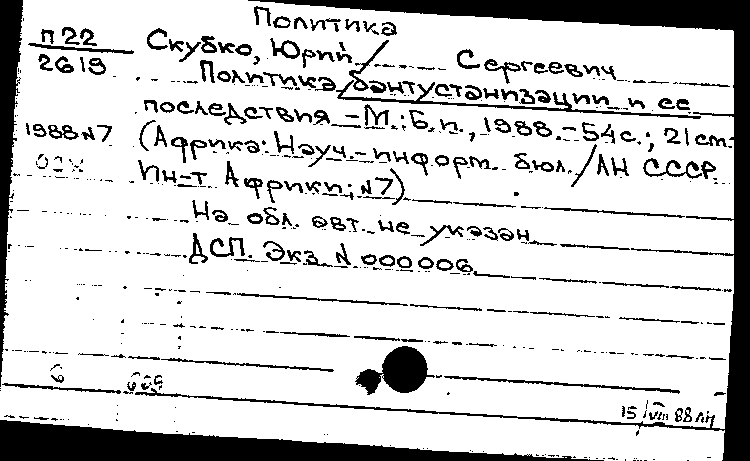 Политика
п22 Скубко, Юрий Сергеевич
2619 Политика бантустанизации и ее
последствия – М.: Б.и., 1988. – 54с.; 21 см.
1988 N7 (Африка: Науч.-информ. бюл. / АН СССР
ОЗХ Ин-т Африки; N7)
На обл. авт. не указан
ДСП. Экз. N 000006.
6 609
15/VIII 88 ЛН